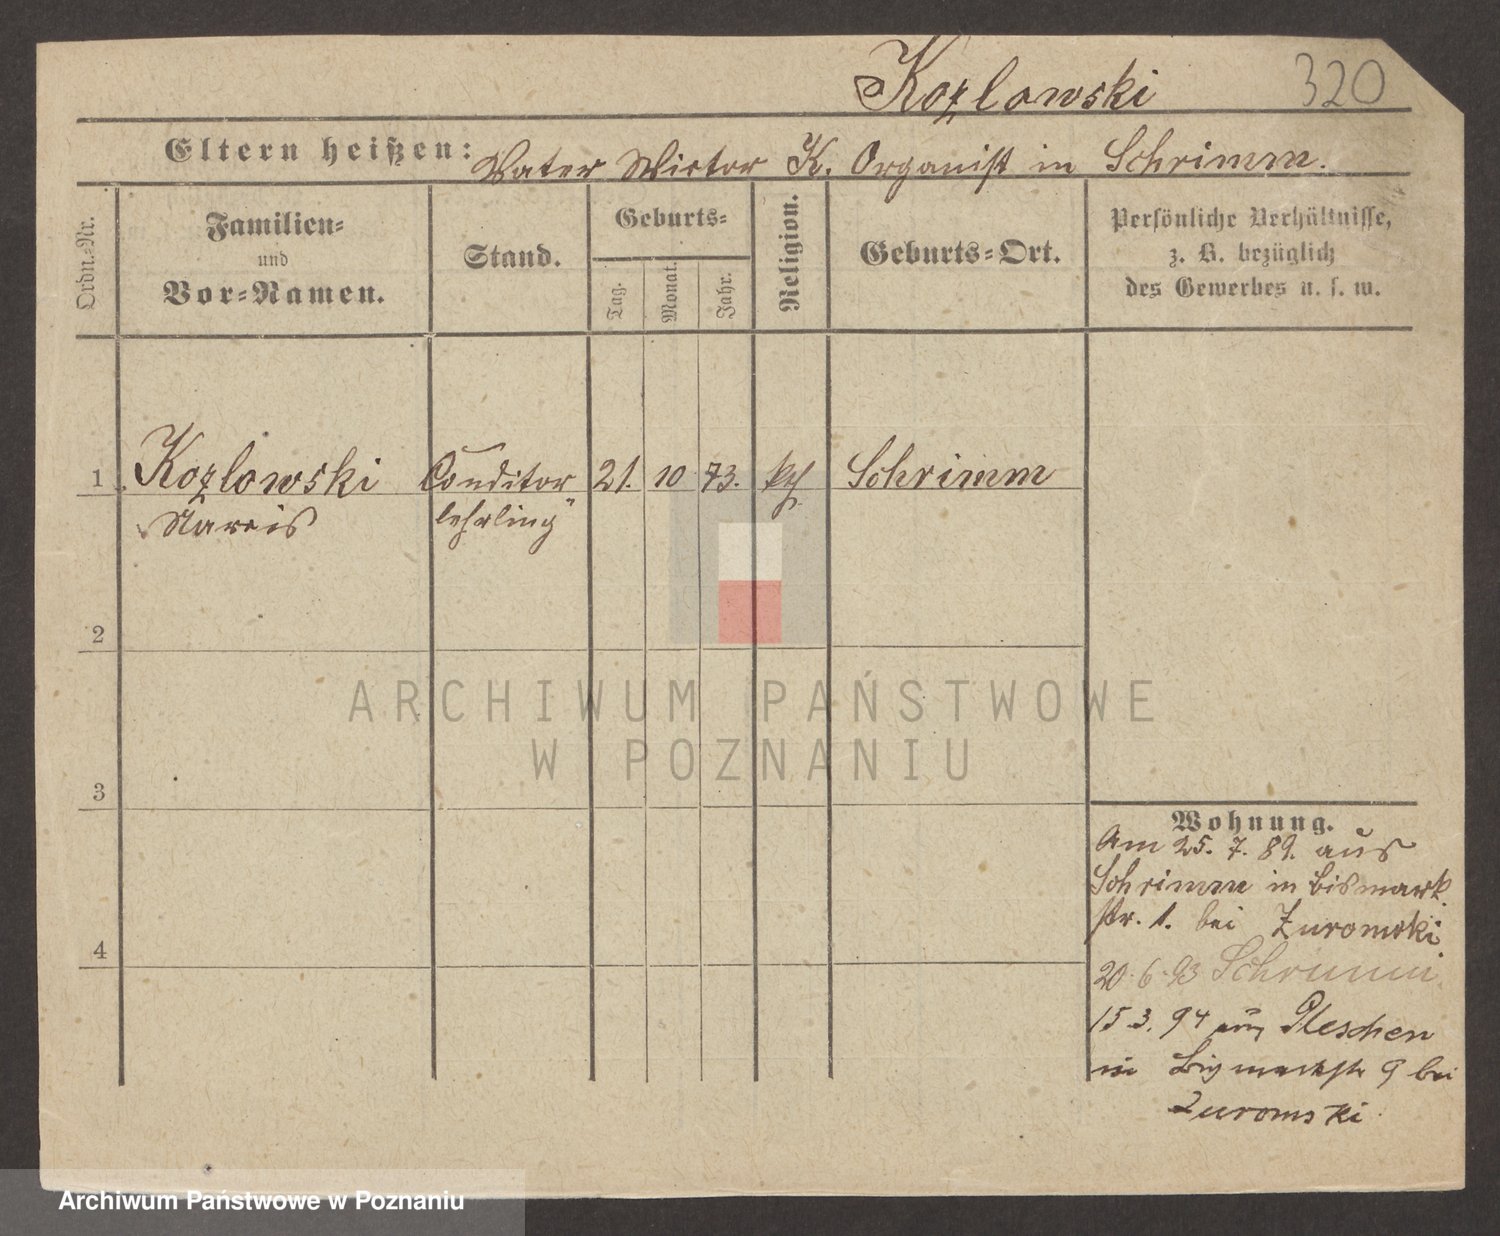 Kozlowski
320
Eltern heißen: Vater Wictor K. Organist in Schrimm.
Ordn.-Nr.
Familien-
und
Vor-Namen.
Stand.
Geburts-
Tag.
Monat.
Jahr.
Religion.
Geburts-Ort.
Persönliche Verhältnisse,
z. B. bezüglich
des Gewerbes u. s. w.
1 Kozlowski Conditor 21. 10 73. kth. Schrimm
Narcis lehrling
2
3
4
Wohnung.
Am 25. 7. 89. aus
Schrimm in Bismark
str. 1. bei Zuromski
20.6.93 Schrimm.
15 3. 94 aus Pleschen
in Bismarckstr 9 bei
Zuromski
ARCHIWUM PAŃSTWOWE
W POZNANIU
Archiwum Państwowe w Poznaniu